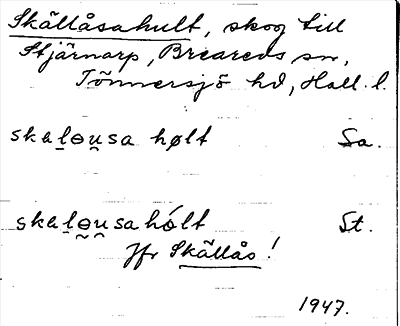 Skällåsahult, skog till
Stjärnarp, Breareds sn,
Tönnersjö hd, Hall. l.
skaḻɵu̯sa hølt Sa.
skaḻɵ̰ṵsahólt St.
Jfr Skällås!
1947.